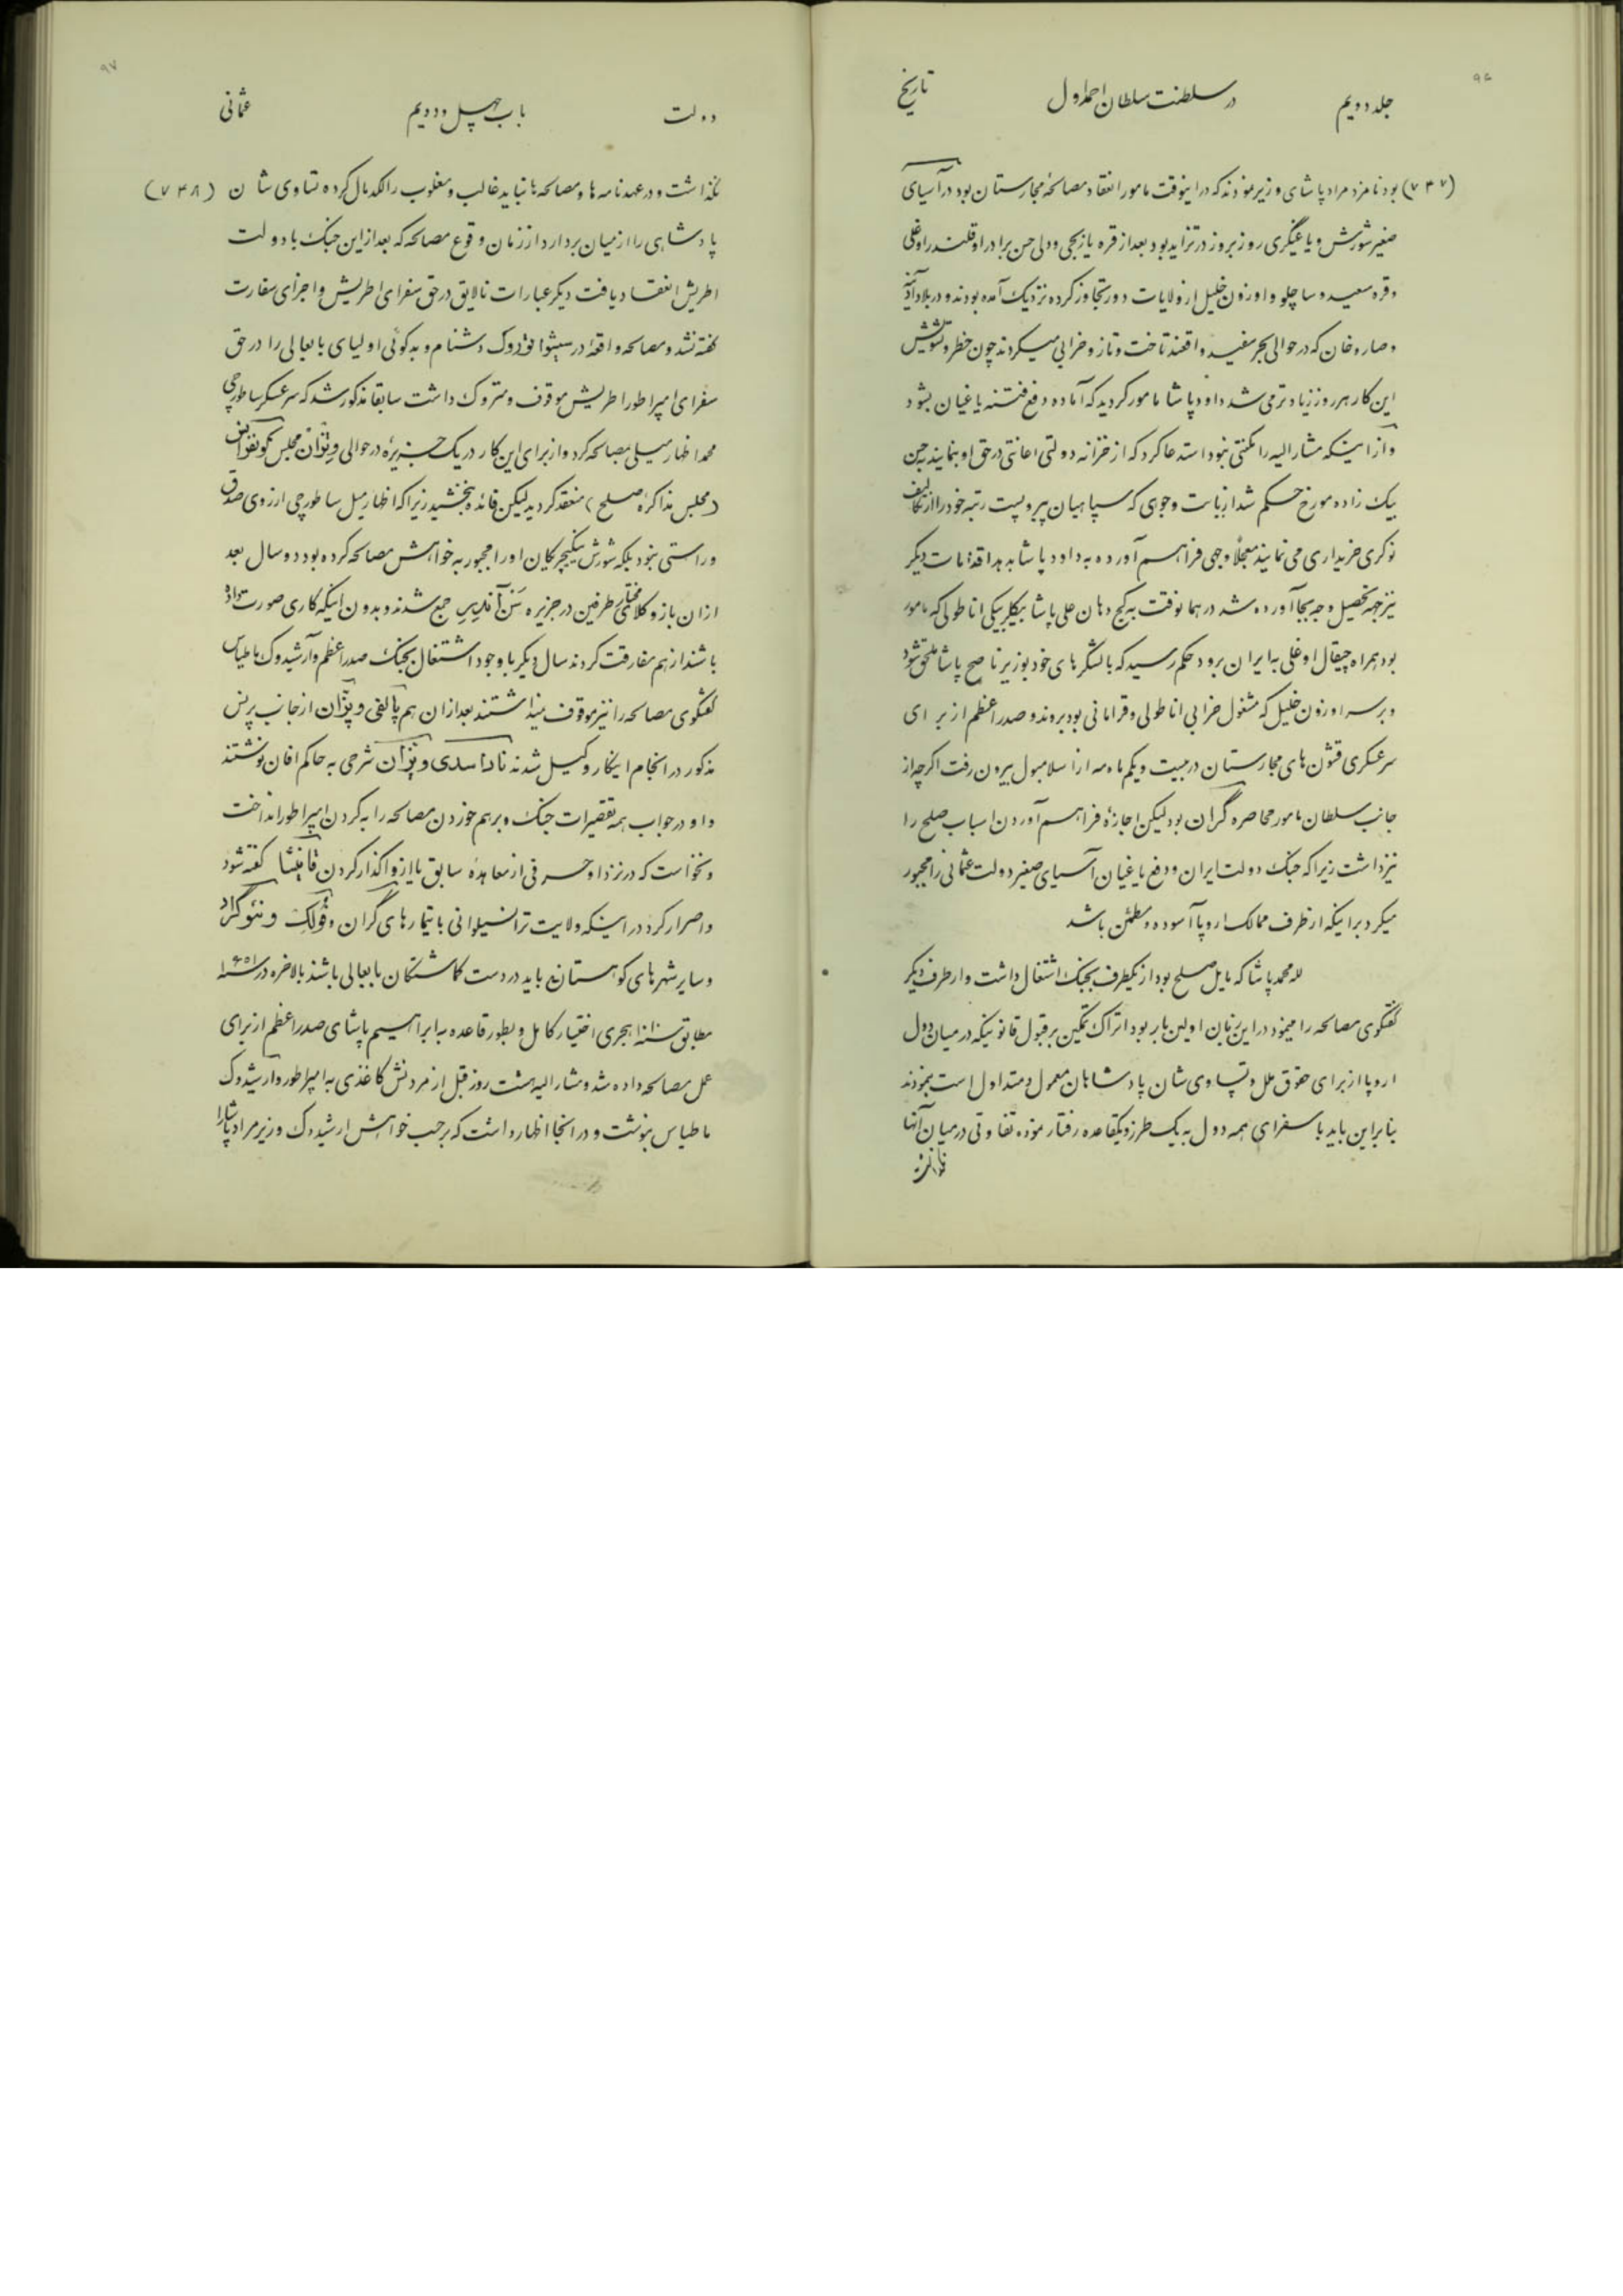 ۹۶
جلد دویم
در سلطنت سلطان احمد اول
تاریخ
(۷۴۷) بود نامزد مراد پاشای وزیر نمودند که در اینوقت مامور انعقاد مصالحهٔ مجارستان بود در آسیای
صغیر شورش و یاغیگری روز بروز در تزاید بود بعد از قره یازیجی و دلی حسن برادر او قلندر اوغلی
و قره سعید و ساچلو و اوزون خلیل از ولایات دور تجاوز کرده نزدیک آمده بودند و در بلاد آدنه
و صاروخان که در حوالی بحر سفید واقعند تاخت و تاز و خرابی میکردند چون خطر و تشویش
این کار هر روز زیادتر می شد داود پاشا مامور گردید که آماده دفع فتنه یاغیان بشود
و از اینکه مشار الیه را مکنتی نبود استدعا کرد که از خزانه دولتی اعانتی در حق او بنمایند حسن
بیک زاده مورخ حکم شد از بابت وجوهی که سپاهیان پیر و پست رتبه خود را از تکالیف
نوکری خریداری می نمایند معجلاً وجهی فراهم آورده به داود پاشا بدهد اقدامات دیگر
نیز جهة تحصیل وجه بجا آورده شد در همانوقت به کج دهان علی پاشا بیکلربیکی اناطولی که مامور
بود همراه چیقال اوغلی به ایران برود حکم رسید که با لشکرهای خود بوزیر ناصح پاشا ملحق شود
و بر سر اوزون خلیل که مشغول خرابی اناطولی و قرامانی بود بروند و صدراعظم از برای
سرعسکری قشون های مجارستان در بیست و یکم ماه مه از اسلامبول بیرون رفت اگرچه از
جانب سلطان مامور محاصره گران بود لیکن اجازهٔ فراهم آوردن اسباب صلح را
نیز داشت زیرا که جنگ دولت ایران و دفع یاغیان آسیای صغیر دولت عثمانی را مجبور
میکرد بر اینکه از طرف ممالک اروپا آسوده و مطمئن باشد
لله محمد پاشا که مایل صلح بود از یکطرف بجنگ اشتغال داشت و از طرف دیگر
گفتگوی مصالحه را مینمود در این زمان اولین بار بود اتراک تمکین بر قبول قانونیکه در میان دول
اروپا از برای حقوق ملل و تساوی شان پادشاهان معمول و متداول است نمودند
بنابراین باید با سفرای همه دول به یک طرز و یکقاعده رفتار نموده تفاوتی در میان آنها
۹۷
دولت
باب چهل و دویم
عثمانی
نگذاشت و در عهدنامه ها و مصالحه ها نباید غالب و مغلوب را لگدمال کرده تساوی شان (۷۴۸)
پادشاهی را از میان بردارد از زمان وقوع مصالحه که بعد از این جنگ با دولت
اطریش انعقاد یافت دیگر عبارات نالایق در حق سفرای اطریش و اجزای سفارت
گفته نشد و مصالحه واقعهٔ در سیتواتوروک دشنام و بدگوئی اولیای بابعالی را در حق
سفرای امپراطور اطریش موقوف و متروک داشت سابقا مذکور شد که سرعسکر ساطورچی
محمد اظهار میلی بمصالحه کرد و از برای این کار در یک جزیرهٔ در حوالی ویتزان مجلس
(مجلس مذاکرهٔ صلح) منعقد گردید لیکن فائده نبخشید زیرا که اظهار میل ساطورچی از روی صدق
و راستی نبود بلکه شورش ینگیچریکان او را مجبور به خواهش مصالحه کرده بود دو سال بعد
از ان باز وکلای مختار طرفین در جزیره سن آندریس جمع شدند و بدون اینکه کاری صورت داده
باشند از هم مفارقت کردند سال دیگر با وجود اشتغال بجنگ صدراعظم و آرشیدوک ماطیاس
گفتگوی مصالحه را نیز موقوف نمیداشتند بعد از ان هم پالفی و پزان از جانب پرنس
مذکور در انجام اینکار وکیل شدند ناداسدی و پزان شرحی به حاکم افان نوشتند
و او در جواب همه تقصیرات جنگ و برهم خوردن مصالحه را به گردن امپراطور انداخت
و نخواست که در نزد او حرفی از معاهدهٔ سابق یا از واگذار کردن قانیشا گفته شود
و اصرار کرد در اینکه ولایت ترانسیلوانی با تیمارهای گران و فولک و نئوگراد
و سایر شهرهای کوهستانی باید در دست گماشتگان بابعالی باشند بالاخره در سنه
مطابق سنه هجری اختیار کامل و بطور قاعده به ابراهیم پاشای صدراعظم از برای
عمل مصالحه داده شد و مشار الیه هشت روز قبل از مردنش کاغذی به امپراطور و ارشیدوک
ماطیاس نوشت و در انجا اظهار داشت که بر حسب خواهش ارشیدوک وزیر مراد پاشا را